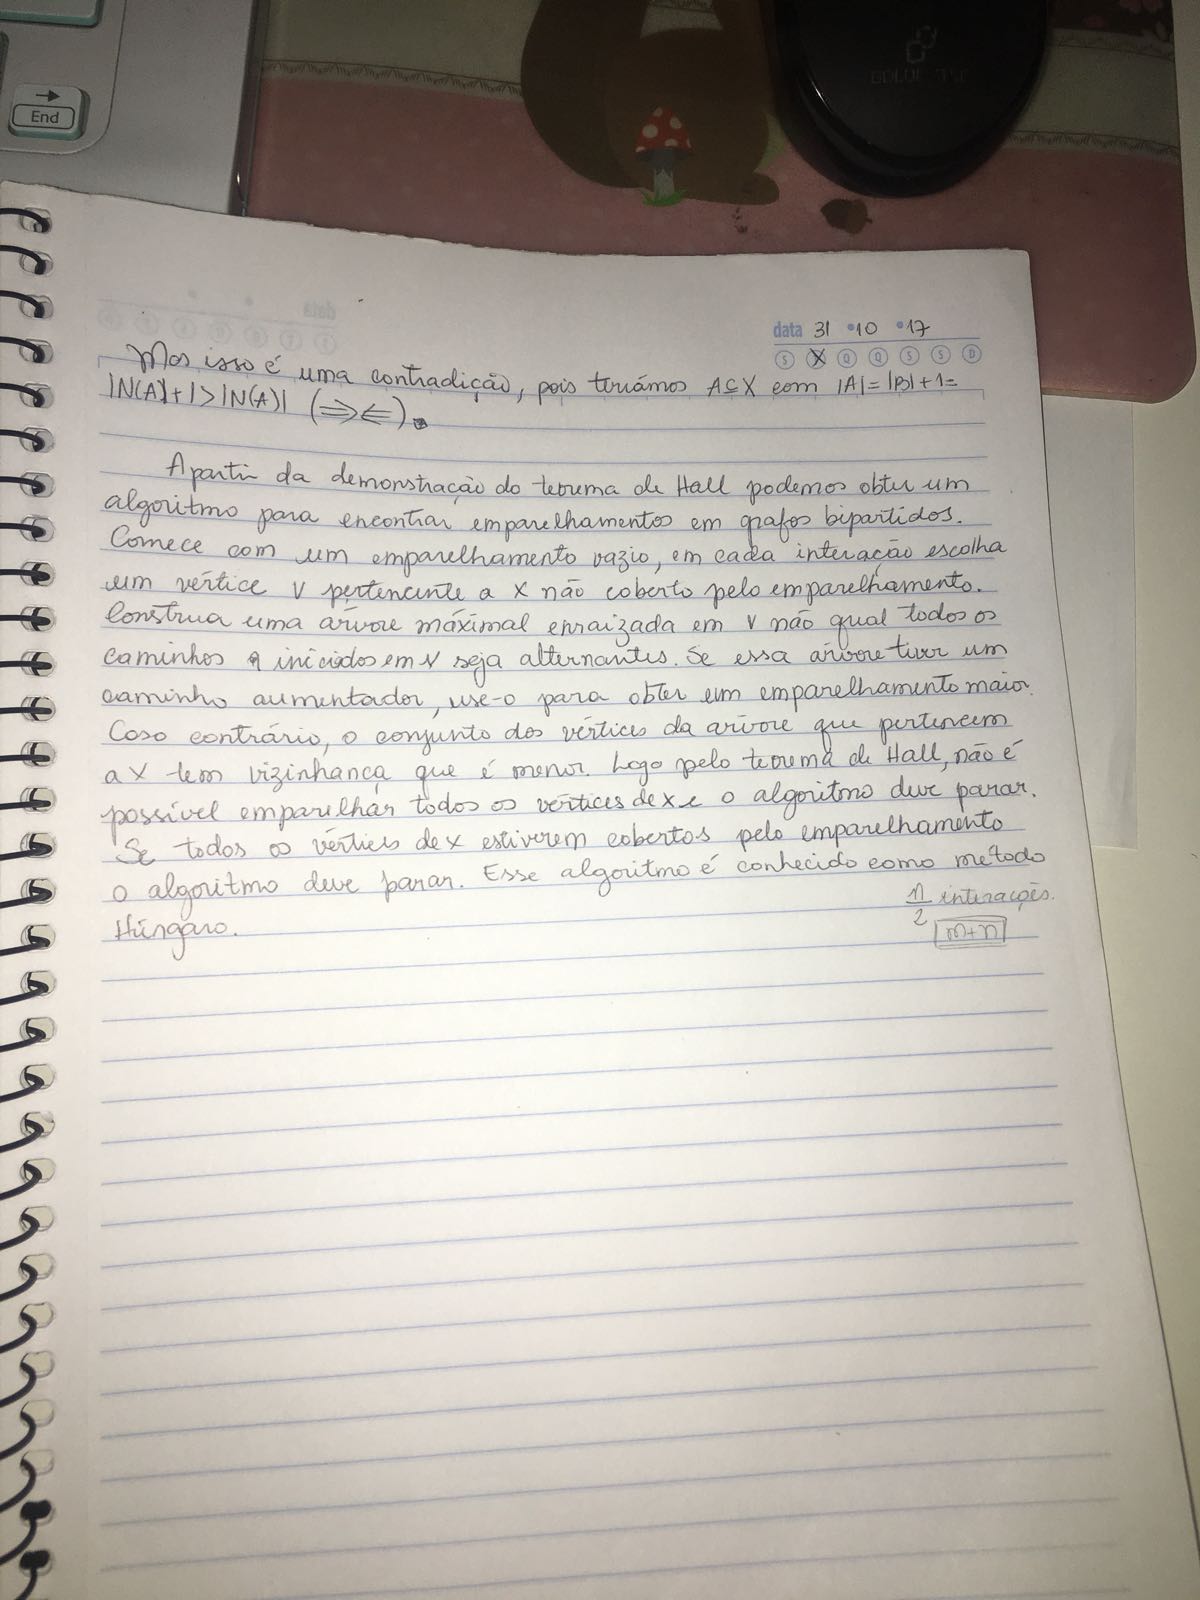 End
data 31 10 17
S X Q Q S S D
Mas isso é uma contradição, pois teriámos A⊆X com |A|=|B|+1=
|N(A)|+1>|N(A)| (⇒⇐).
A partir da demonstração do teorema de Hall podemos obter um
algoritmo para encontrar emparelhamentos em grafos bipartidos.
Comece com um emparelhamento vazio, em cada interação escolha
um vértice v pertencente a X não coberto pelo emparelhamento.
Construa uma árvore máximal enraizada em v não qual todos os
caminhos iniciados em v seja alternantes. Se essa arvore tiver um
caminho aumentador, use-o para obter um emparelhamento maior.
Caso contrário, o conjunto dos vértices da arvore que pertencem
a X tem vizinhança que é menor. Logo pelo teorema de Hall, não é
possível emparelhar todos os vértices de x e o algoritmo deve parar.
Se todos os vértices de x estiverem cobertos pelo emparelhamento
o algoritmo deve parar. Esse algoritmo é conhecido como metodo
Húngaro.
n/2 interações.
m+n